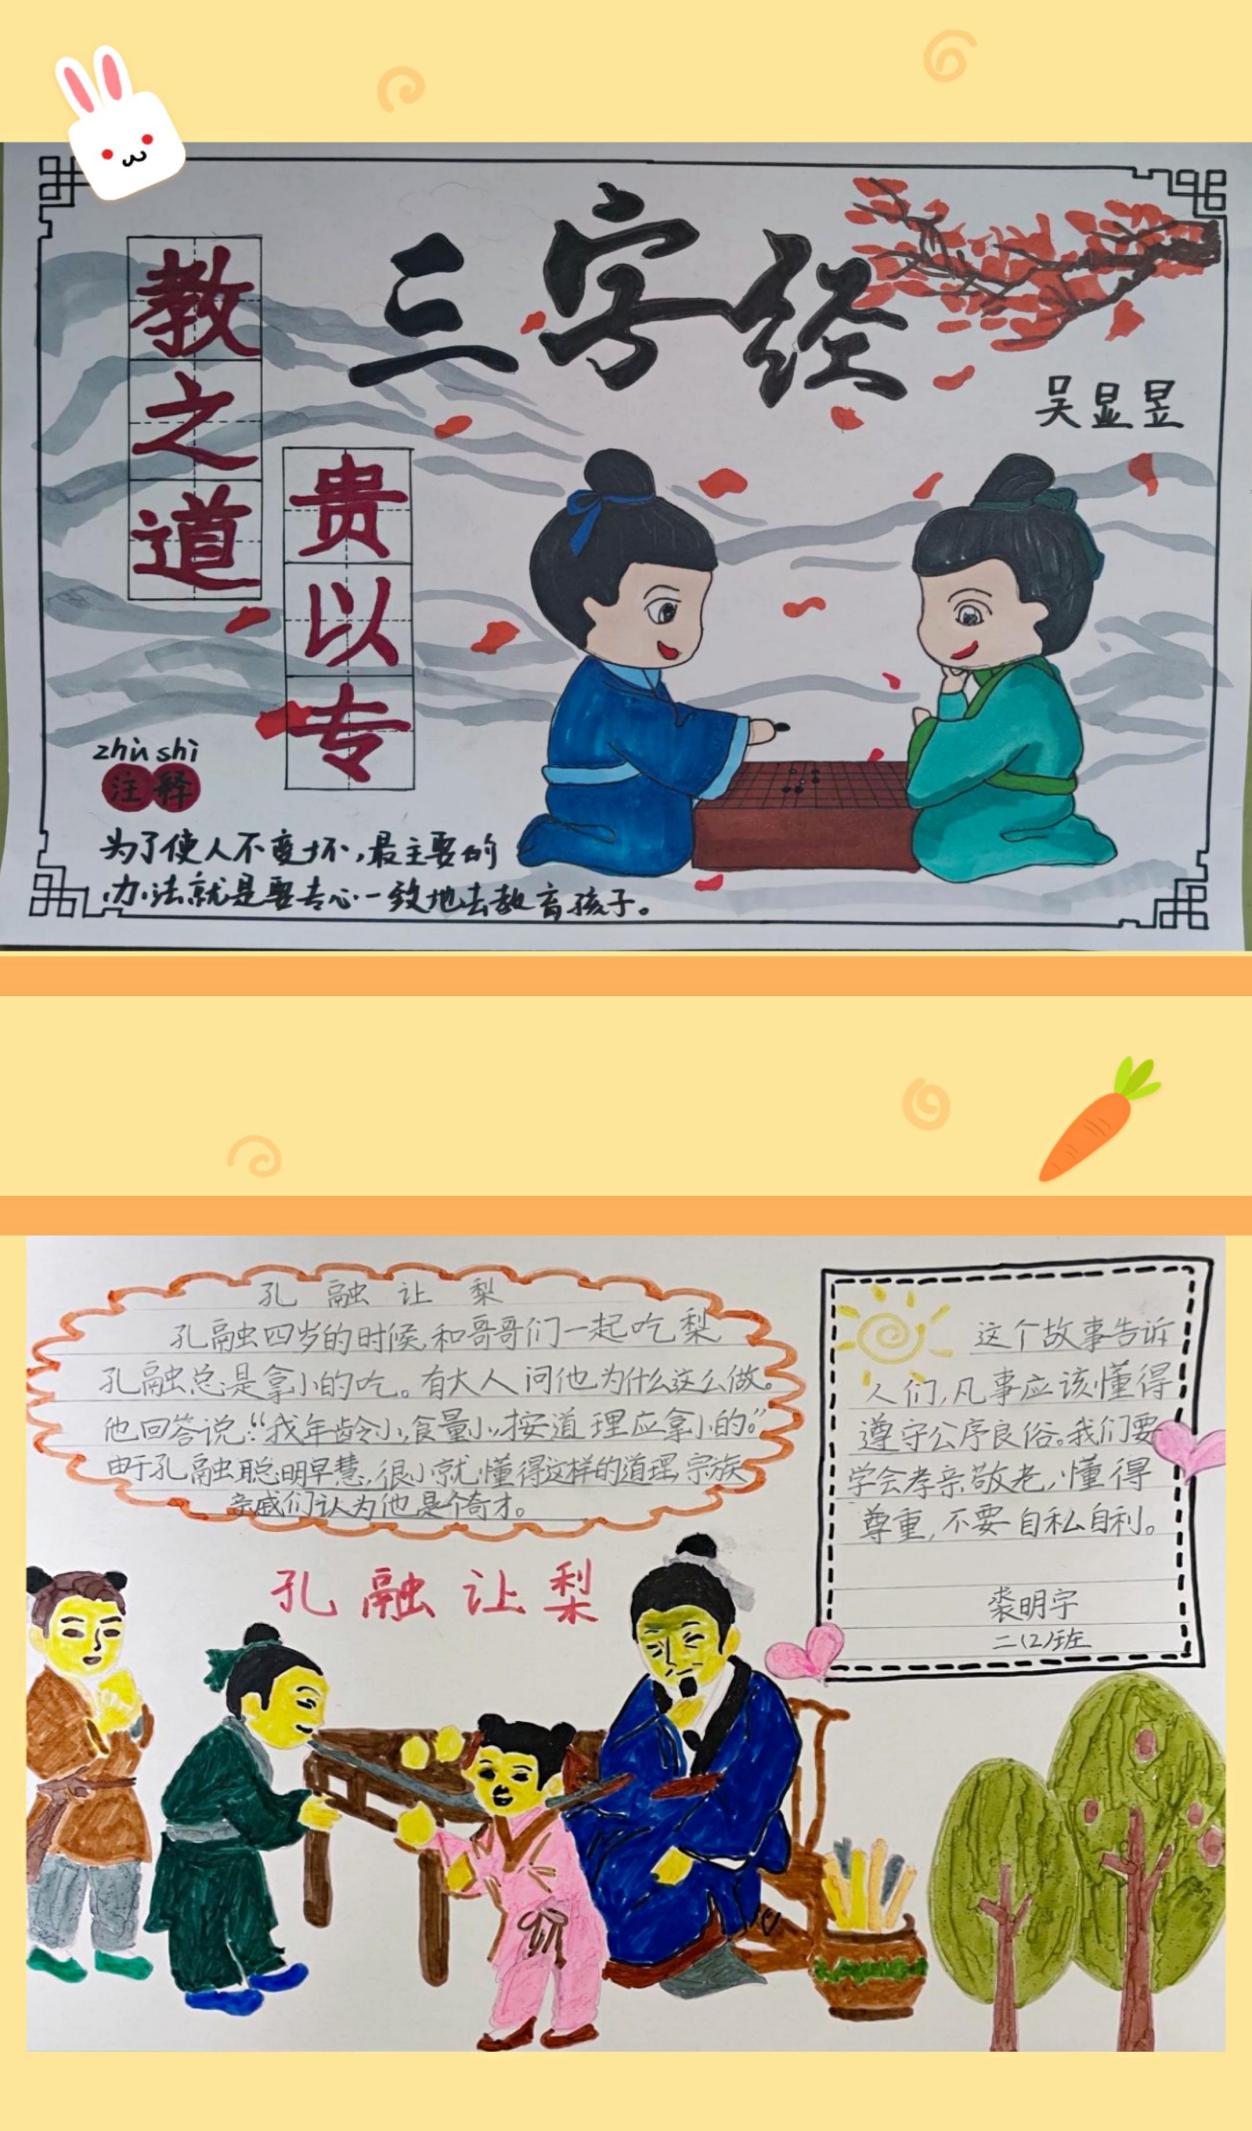 三字经
吴显昱
教之道
贵以专
zhù shì
注释
为了使人不变坏，最主要的
办法就是要专心一致地去教育孩子。
孔融让梨
孔融四岁的时候，和哥哥们一起吃梨
孔融总是拿小的吃。有大人问他为什么这么做。
他回答说：“我年龄小，食量小，按道理应拿小的。”
由于孔融聪明早慧，很小就懂得这样的道理，宗族
亲戚们认为他是个奇才。
这个故事告诉
人们，凡事应该懂得
遵守公序良俗。我们要
学会孝亲敬老，懂得
尊重，不要自私自利。
裘明宇
二(2)班
孔融让梨